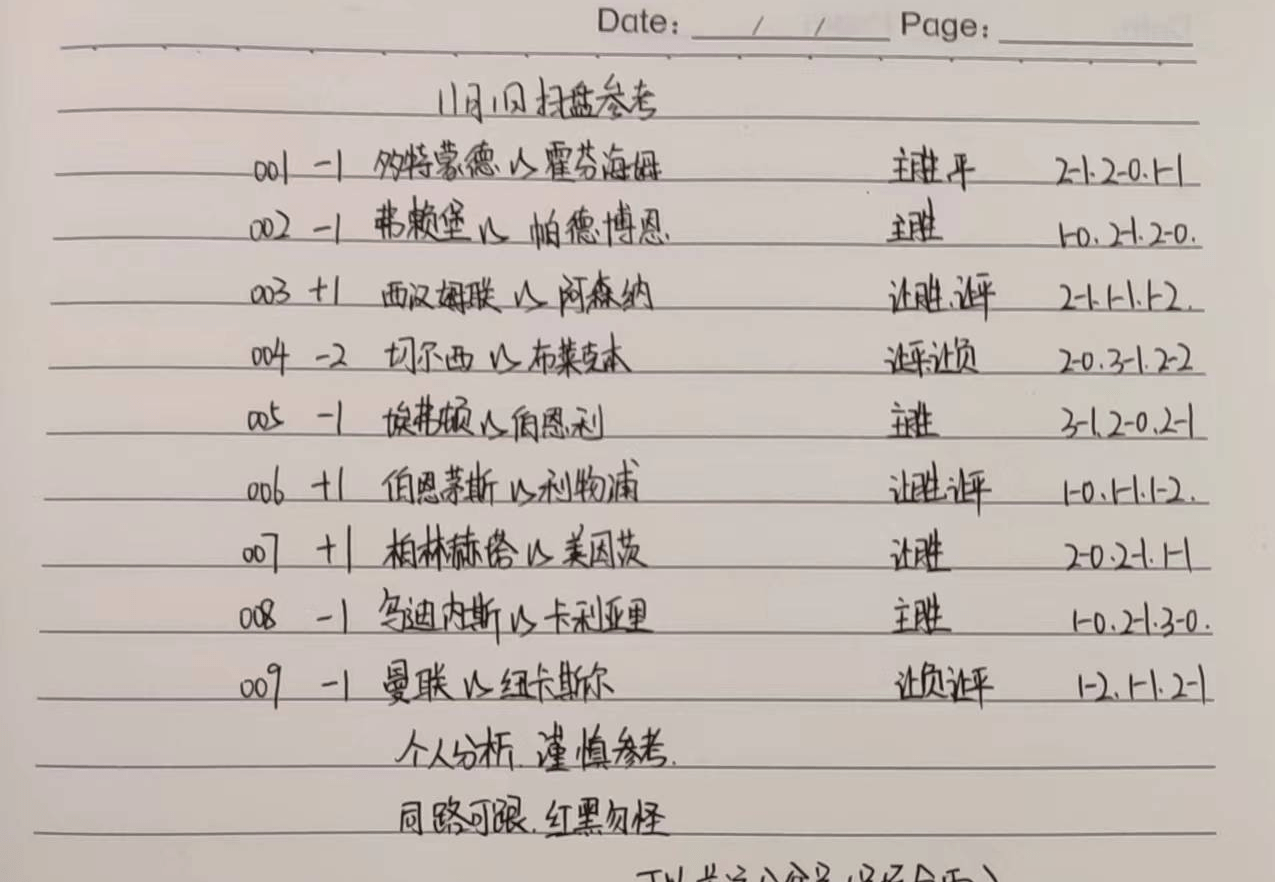 Date: / / Page:
11月1日扫盘参考
001 -1 多特蒙德 vs 霍芬海姆 主胜.平 2-1.2-0.1-1
002 -1 弗赖堡 vs 帕德博恩. 主胜 1-0.2-1.2-0.
003 +1 西汉姆联 vs 阿森纳 让胜.让平 2-1.1-1.1-2.
004 -2 切尔西 vs 布莱克本 让平让负 2-0.3-1.2-2
005 -1 埃弗顿 vs 伯恩利 主胜 3-1.2-0.2-1
006 +1 伯恩茅斯 vs 利物浦 让胜让平 1-0.1-1.1-2.
007 +1 柏林赫塔 vs 美因茨 让胜 2-0.2-1.1-1
008 -1 乌迪内斯 vs 卡利亚里 主胜 1-0.2-1.3-0.
009 -1 曼联 vs 纽卡斯尔 让负让平 1-2.1-1.2-1
个人分析.谨慎参考.
同路可跟.红黑勿怪